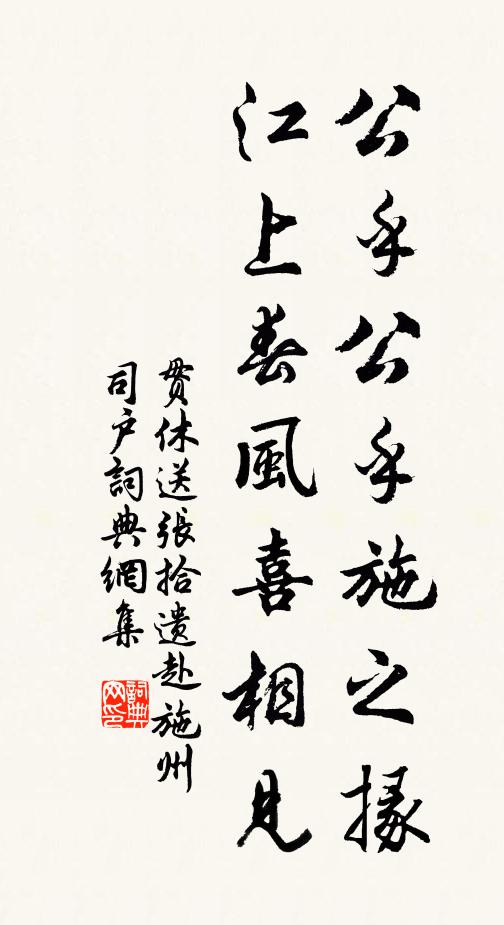 公乎公乎施之掾
江上春風喜相見
貫休送張拾遺赴施州
司户詞典網集
詞典
网印